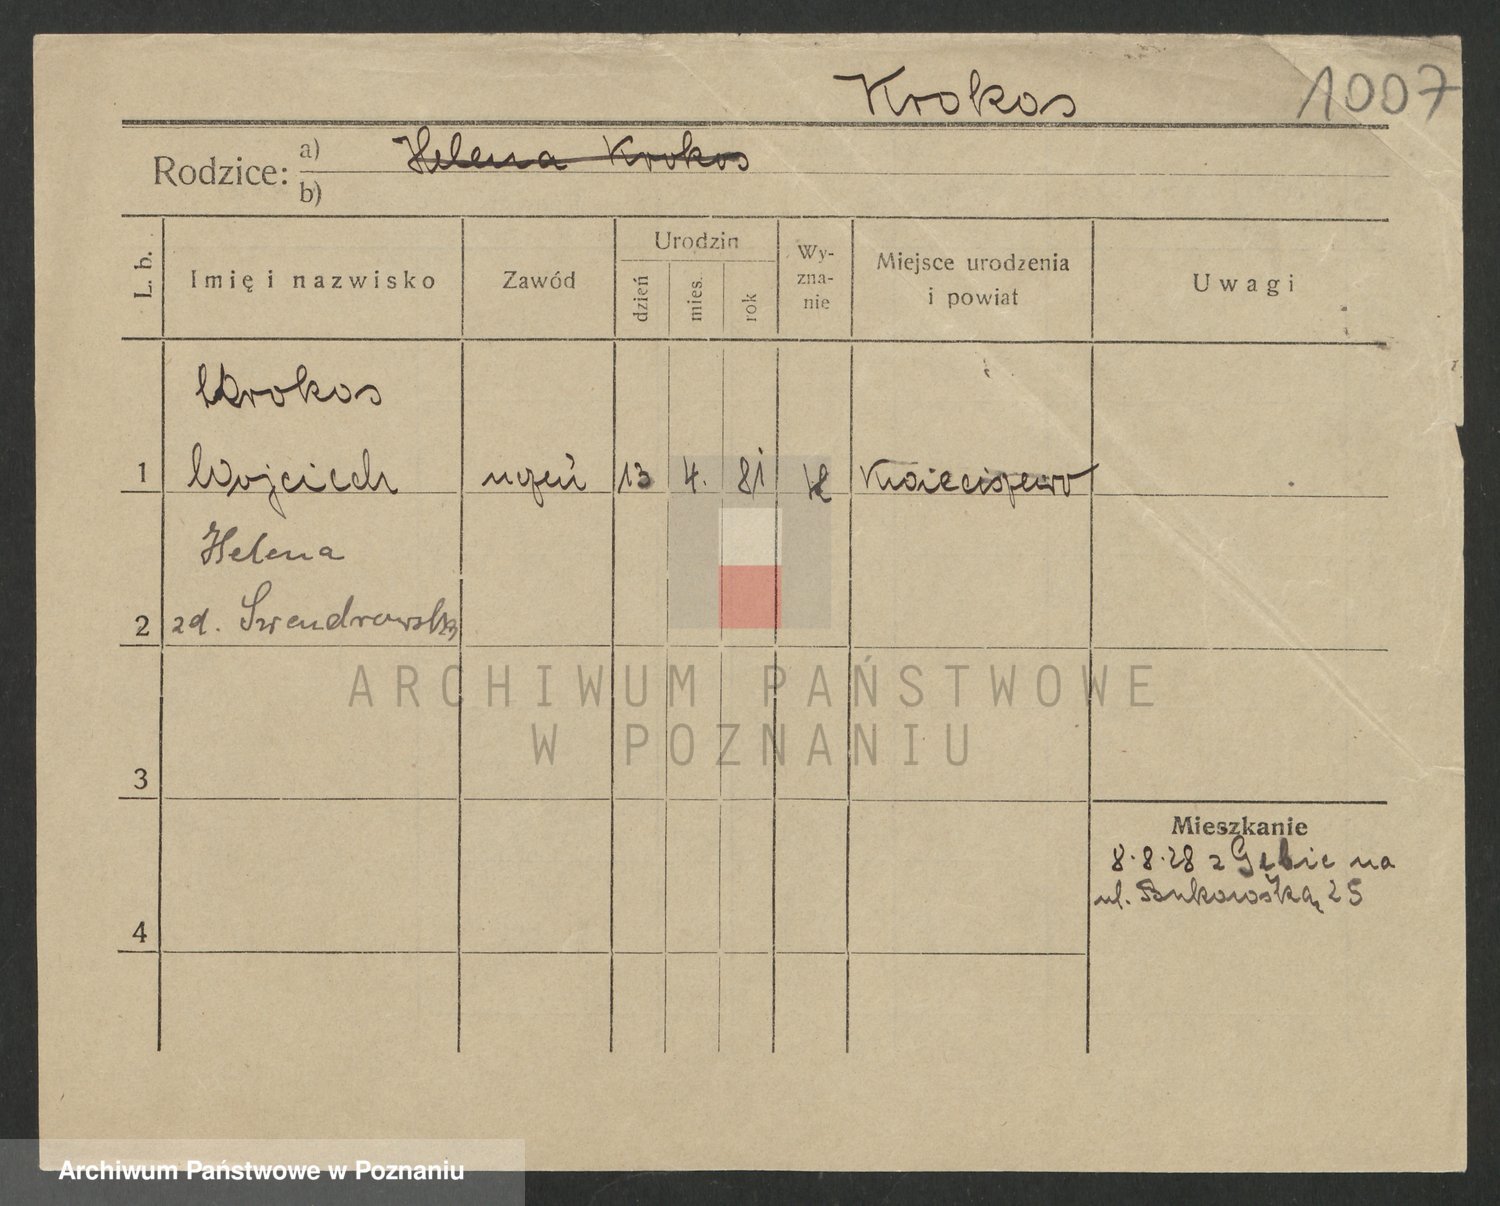 Krokos
1007
Rodzice: a) Helena Krokos
b)
L. b.
Imię i nazwisko
Zawód
Urodzin
dzień
mies.
rok
Wy-
zna-
nie
Miejsce urodzenia
i powiat
Uwagi
Krokos
1 Wojciech uczeń 13 4. 81
Helena
2 zd. Szendrowska
3
4
Mieszkanie
8.8.28 z Gębic na
ul. Bukowską 25
ARCHIWUM PAŃSTWOWE
W POZNANIU
Archiwum Państwowe w Poznaniu